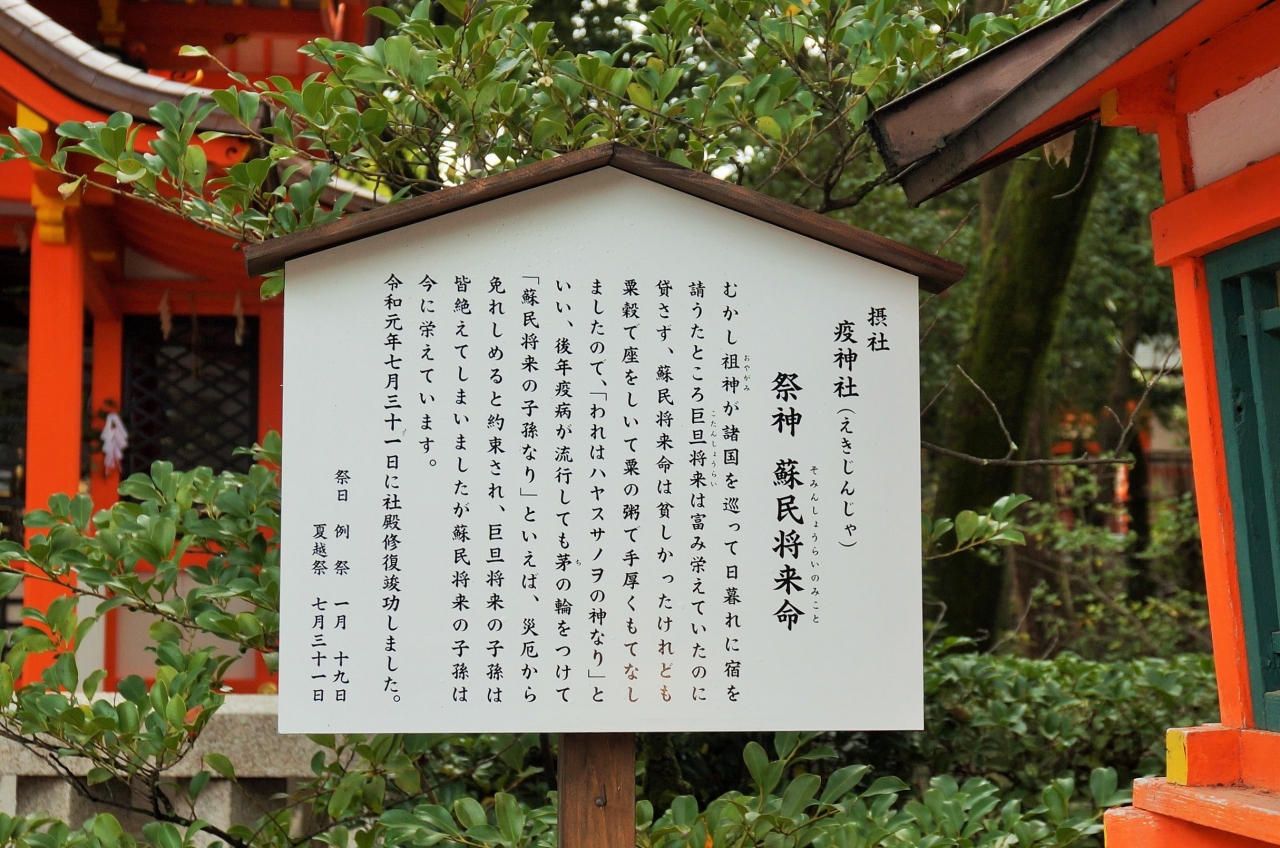 摂社
疫神社(えきじんじゃ)
祭神 蘇民将来命
そみんしょうらいのみこと
むかし祖神が諸国を巡って日暮れに宿を
おやがみ
請うたところ巨旦将来は富み栄えていたのに
こたんしょうらい
貸さず、蘇民将来命は貧しかったけれども
粟穀で座をしいて粟の粥で手厚くもてなし
ましたので、「われはハヤスサノヲの神なり」と
いい、後年疫病が流行しても茅の輪をつけて
ち
「蘇民将来の子孫なり」といえば、災厄から
免れしめると約束され、巨旦将来の子孫は
皆絶えてしまいましたが蘇民将来の子孫は
今に栄えています。
令和元年七月三十一日に社殿修復竣功しました。
祭日 例 祭 一月 十九日
夏越祭 七月三十一日